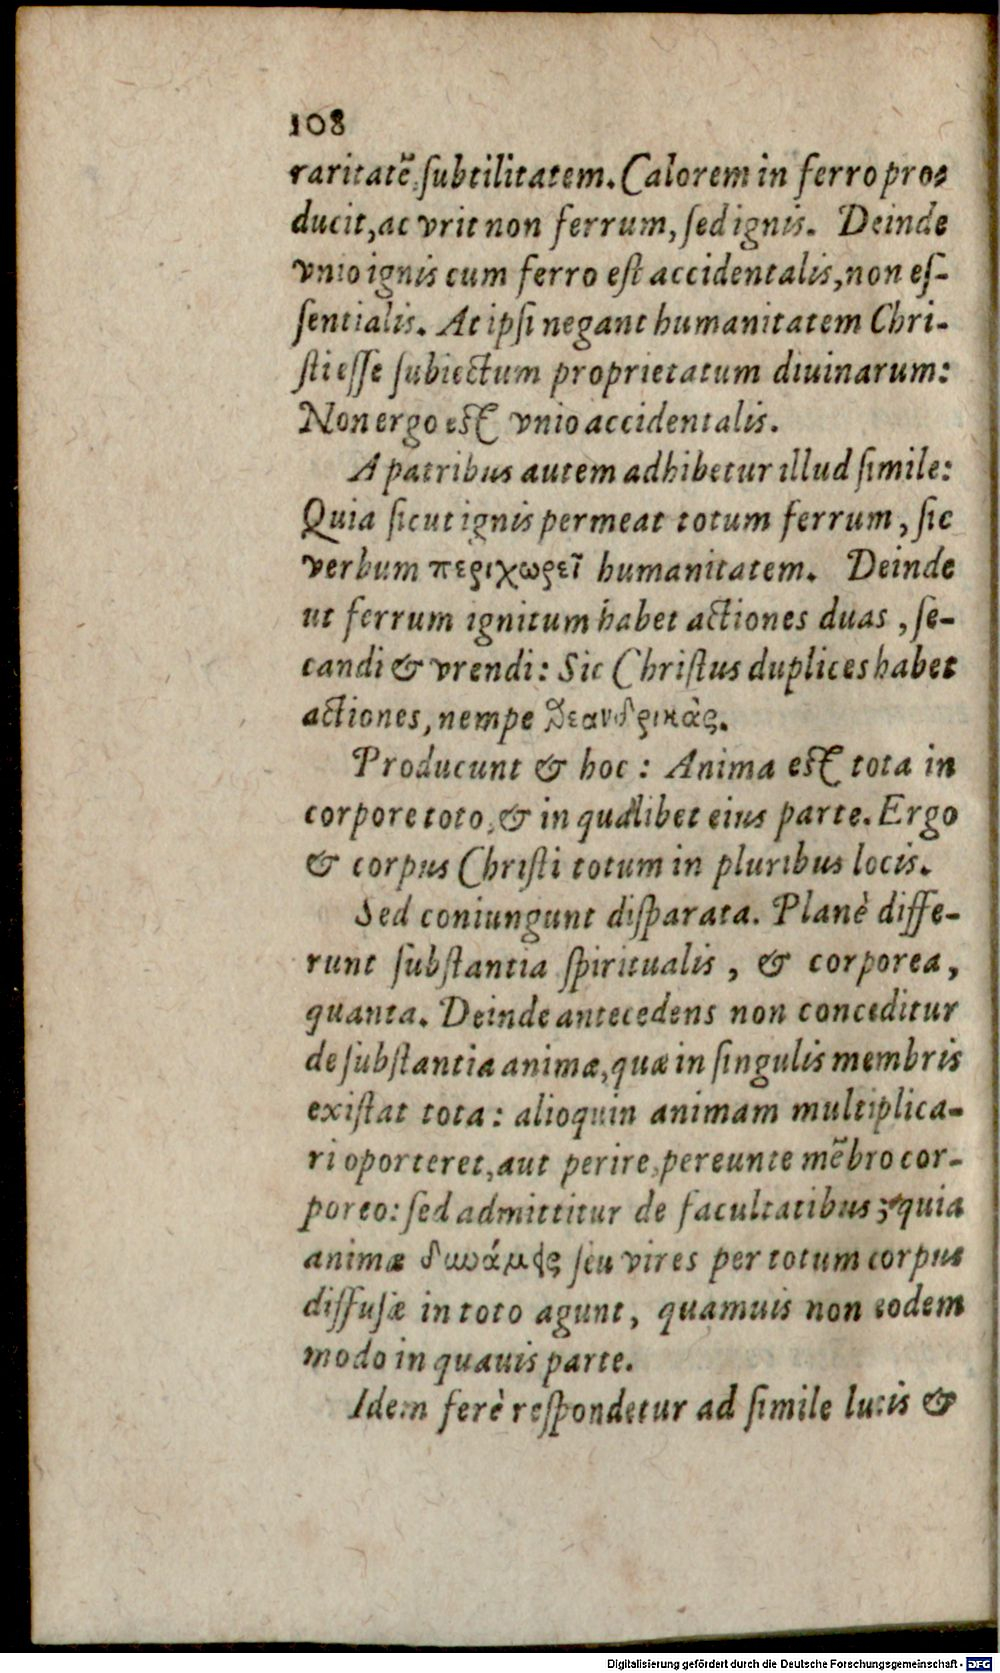 108
raritatē, ſubtilitatem. Calorem in ferro pro-
ducit, ac vrit non ferrum, ſed ignis. Deinde
vnio ignis cum ferro eſt accidentalis, non eſ-
ſentialis. At ipſi negant humanitatem Chri-
ſti eſſe ſubiectum proprietatum diuinarum:
Non ergo eſt vnio accidentalis.
A patribus autem adhibetur illud ſimile:
Quia ſicut ignis permeat totum ferrum, ſic
verbum περιχωρεῖ humanitatem. Deinde
ut ferrum ignitum habet actiones duas, ſe-
candi & vrendi: Sic Chriſtus duplices habet
actiones, nempe θεανδρικὰς.
Producunt & hoc: Anima eſt tota in
corpore toto, & in qualibet eius parte. Ergo
& corpus Chriſti totum in pluribus locis.
Sed coniungunt diſparata. Planè diffe-
runt ſubſtantia ſpiritualis, & corporea,
quanta. Deinde antecedens non conceditur
de ſubſtantia animæ, quæ in ſingulis membris
exiſtat tota: alioquin animam multiplica-
ri oporteret, aut perire, pereunte mēbro cor-
poreo: ſed admittitur de facultatibus, quia
animæ δυνάμεις ſeu vires per totum corpus
diffuſæ in toto agunt, quamuis non eodem
modo in quauis parte.
Idem ferè reſpondetur ad ſimile lucis &
Digitalisierung gefördert durch die Deutsche Forschungsgemeinschaft - DFG